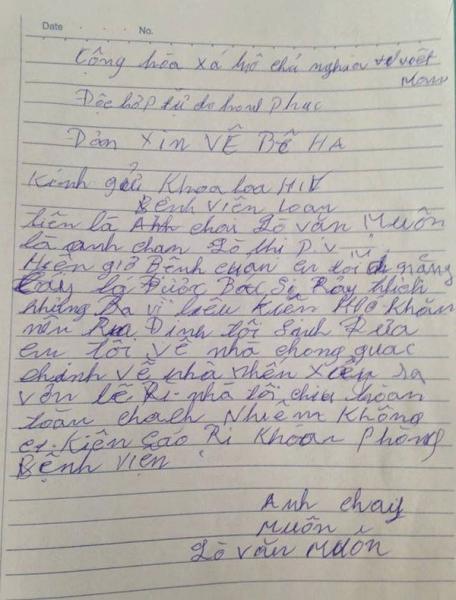 Date No.
Cộng hòa xá hộ chủ nghĩa việt
Nam
Độc hập tự do hanh phuc
Đản XIN VỀ BỆ HA
Kính gửi Khoa loa HIV
Bệnh viên loan
liên là Anh chai Lò văn Muôn
là anh chan Lò thi
Hiên giờ Bênh cuan em tôi đ giảng
Cay là Được Bác Sĩ Ray thich
nhưng Ba vì liêu Kiên Khó Khăn
nên Rua Đinh tôi Sanh Đưa
em tôi về nhà chong quac
chinh về nhà nhên xiên sa
vớn lề Ri nhà tôi chiu hoàn
toàn chach Nhiêm Không
Kiên Cáo Ri Khoan Phòng
Bệnh Viện
Anh chay
Muôn
Lò văn Muôn